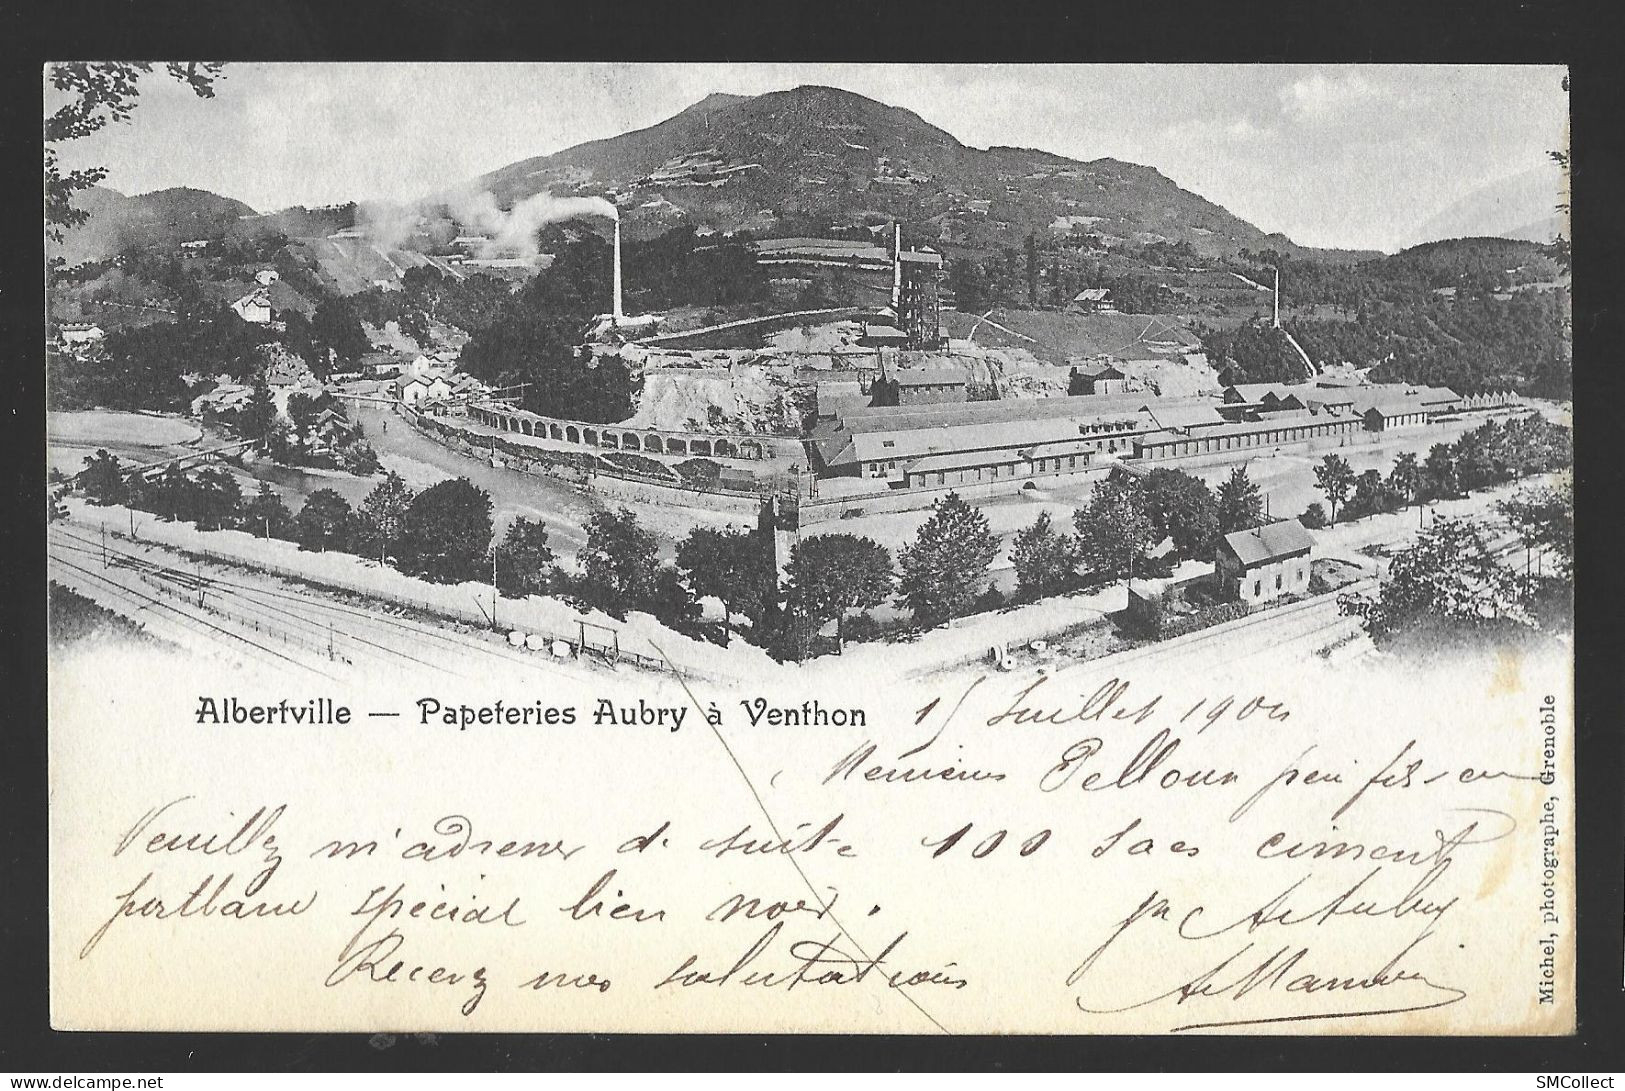 Albertville — Papeteries Aubry à Venthon
15 Juillet 1900
Messieurs Pelloux père fils
Veuillez m'adresser de suite 100 sacs ciment
portland spécial bien noir.
pr A Aubry
Recevez mes salutations
Michel, photographe, Grenoble
SMCollect